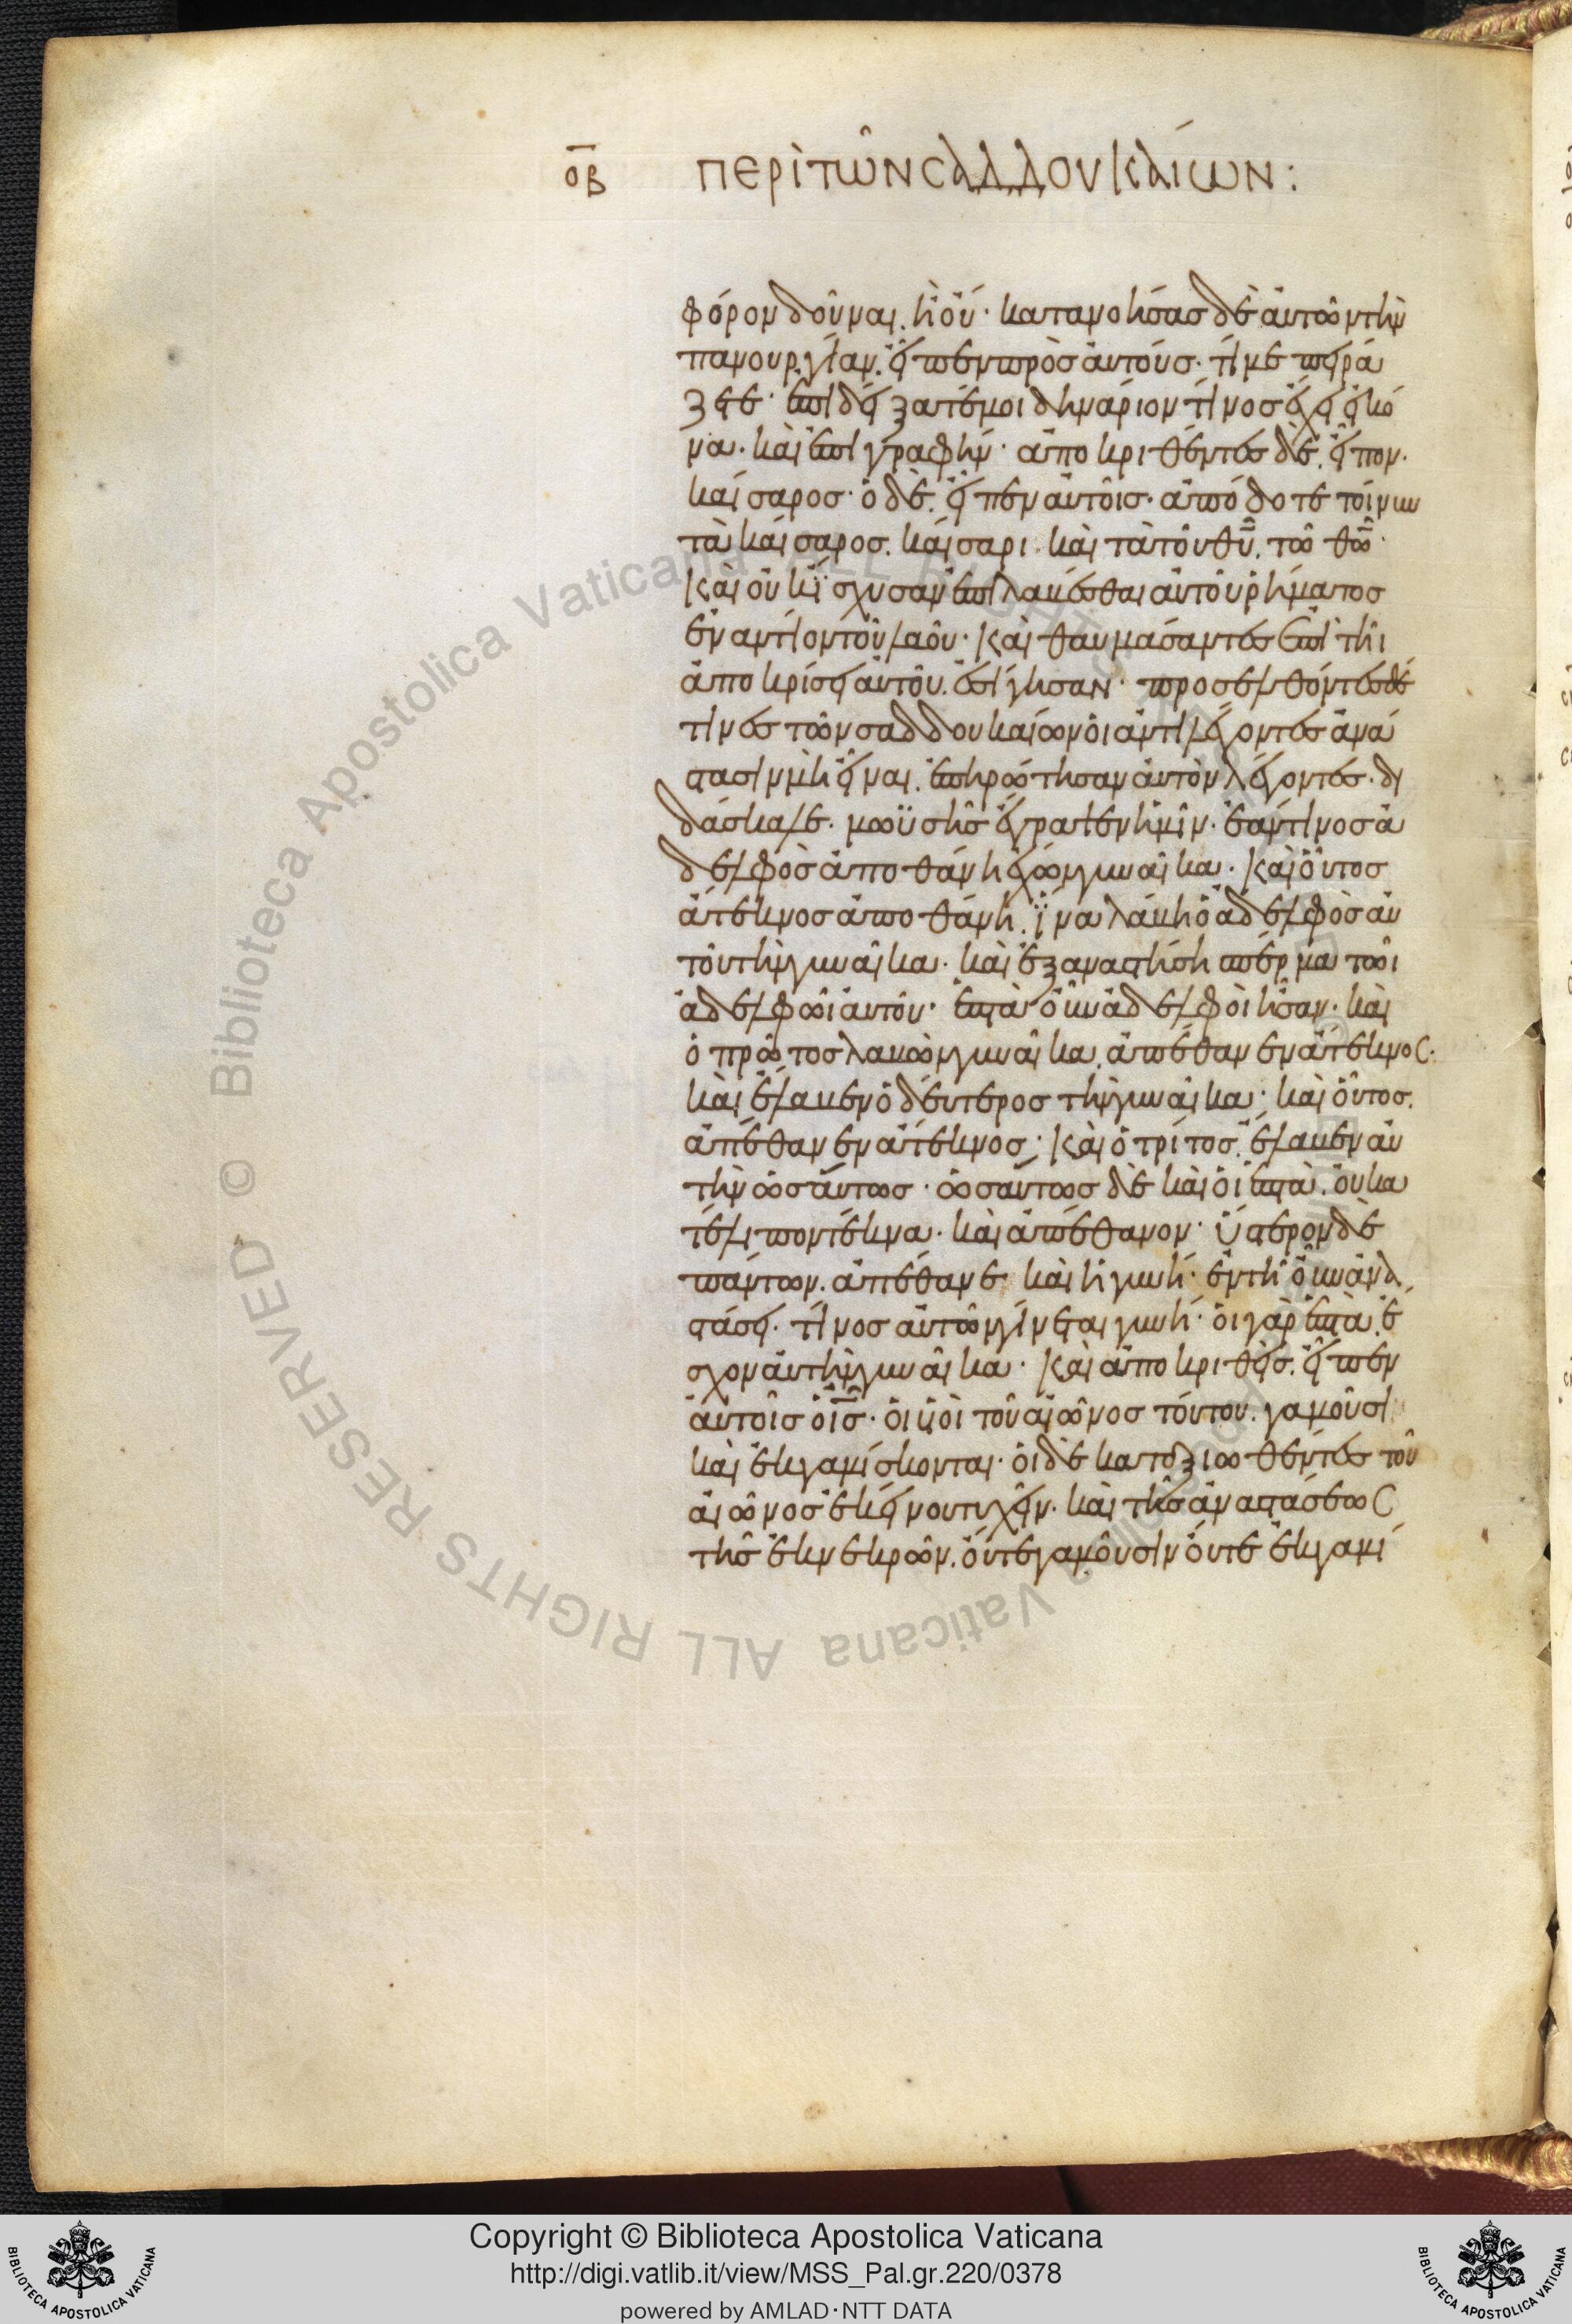 ο̅β̅ ΠΕΡῚ ΤῶΝ CΑΔΔΟΥΚΑΊωΝ:
φόρον δοῦναι. ἢ οὔ· κατανοήσας δὲ αὐτῶν τὴν
πανουργίαν. εἶπεν πρὸς αὐτούς· τί με πειρά
ζετε· ἐπιδείξατέ μοι δηνάριον τίνος ἔχει εἰκό
να. καὶ ἐπιγραφήν· ἀποκριθέντες δὲ. εἶπον.
καίσαρος· ὁ δὲ. εἶπεν αὐτοῖς· ἀπόδοτε τοίνυν
τὰ καίσαρος. καίσαρι. καὶ τὰ τοῦ θ̅υ̅. τῶ θ̅ω̅·
Καὶ οὐκ ἴσχυσαν ἐπιλαβέσθαι αὐτοῦ ῥήματος
ἐναντίον τοῦ λαοῦ· Καὶ θαυμάσαντες ἐπὶ τῆι
ἀποκρίσει αὐτοῦ. ἐσίγησαν· προσελθόντες δέ
τινες τῶν σαδδουκαίων οἱ ἀντιλέγοντες ἀνά
στασιν μὴ εἶναι. ἐπηρώτησαν αὐτὸν λέγοντες. δι
δάσκαλε. μωϋσῆς ἔγραψεν ἡμῖν· ἐάν τινος ἀ
δελφὸς ἀποθάνη ἔχων γυναῖκα· Καὶ οὗτος
ἄτεκνος ἀποθάνη. ἵνα λάβη ὁ ἀδελφὸς αὐ
τοῦ τὴν γυναῖκα· καὶ ἐξαναστήση σπέρμα τῶι
ἀδελφῶι αὐτοῦ· ἑπτὰ οὖν ἀδελφοὶ ἦσαν· καὶ
ὁ πρῶτος λαβὼν γυναῖκα. ἀπέθανεν ἄτεκνοC.
καὶ ἔλαβεν ὁ δεύτερος τὴν γυναῖκα· καὶ οὗτος.
ἀπέθανεν ἄτεκνος· Καὶ ὁ τρίτος. ἔλαβεν αὐ
τὴν ὡσαύτως· ὡσαύτως δὲ καὶ οἱ ἑπτὰ. οὐ κα
τέλιπον τέκνα. καὶ ἀπέθανον· ὕστερον δὲ
πάντων. ἀπέθανε καὶ ἡ γυνή· ἐν τῆ οὖν ἀνα
στάσει. τίνος αὐτῶν γίνεται γυνή· οἱ γὰρ ἑπτὰ. ἔ
σχον αὐτὴν γυναῖκα· Καὶ ἀποκριθεὶς. εἶπεν
αὐτοῖς ὁ ι̅ς̅· οἱ υἱοὶ τοῦ αἰῶνος τούτου. γαμοῦσι
καὶ ἐκγαμίσκονται· οἱ δὲ καταξιωθέντες τοῦ
αἰῶνος ἐκείνου τυχεῖν. καὶ τῆς ἀναστάσεωC
τῆς ἐκ νεκρῶν. οὔτε γαμοῦσιν οὔτε ἐκγαμί
© Biblioteca Apostolica Vaticana ALL RIGHTS RESERVED © Biblioteca Apostolica Vaticana ALL RIGHTS RESERVED
Copyright © Biblioteca Apostolica Vaticana
http://digi.vatlib.it/view/MSS_Pal.gr.220/0378
powered by AMLAD·NTT DATA
BIBLIOTECA APOSTOLICA VATICANA
BIBLIOTECA APOSTOLICA VATICANA